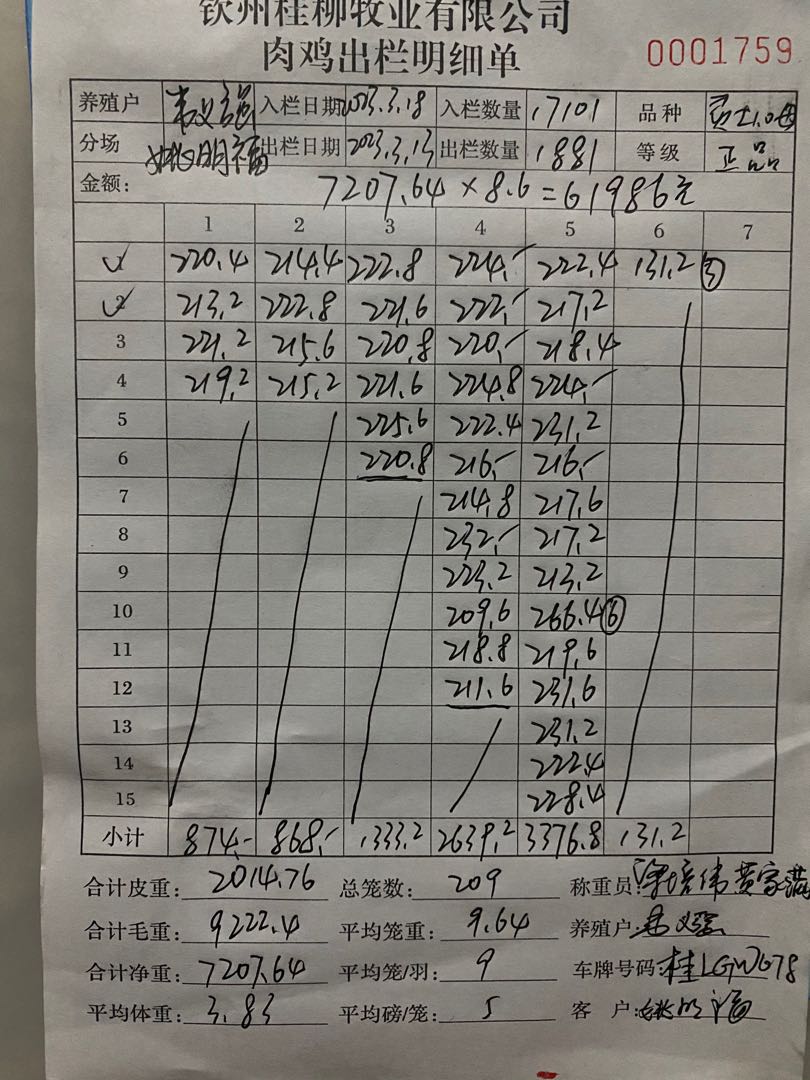 钦州桂柳牧业有限公司
肉鸡出栏明细单 0001759
养殖户 韦义强 入栏日期 2023.3.18 入栏数量 17101 品种
分场 姚明福 出栏日期 2023.3.13 出栏数量 1881 等级 正品
金额: 7207.64 × 8.6 = 61986元
1 2 3 4 5 6 7
1 220.4 214.4 222.8 224.- 222.4 131.2 ③
2 213.2 222.8 221.6 222.- 217.2
3 221.2 215.6 220.8 220.- 218.4
4 219.2 215.2 221.6 224.8 224.-
5 225.6 222.4 231.2
6 220.8 216.- 216.-
7 214.8 217.6
8 232.- 217.2
9 223.2 213.2
10 209.6 266.4 ⑥
11 218.8 219.6
12 211.6 231.6
13 231.2
14 222.4
15 228.4
小计 874.- 868.- 1333.2 2639.2 3376.8 131.2
合计皮重: 2014.76 总笼数: 209 称重员: 培伟 黄家满
合计毛重: 9222.4 平均笼重: 9.64 养殖户: 韦义强
合计净重: 7207.64 平均笼/羽: 9 车牌号码: 桂LGW678
平均体重: 3.83 平均磅/笼: 5 客 户: 姚明福